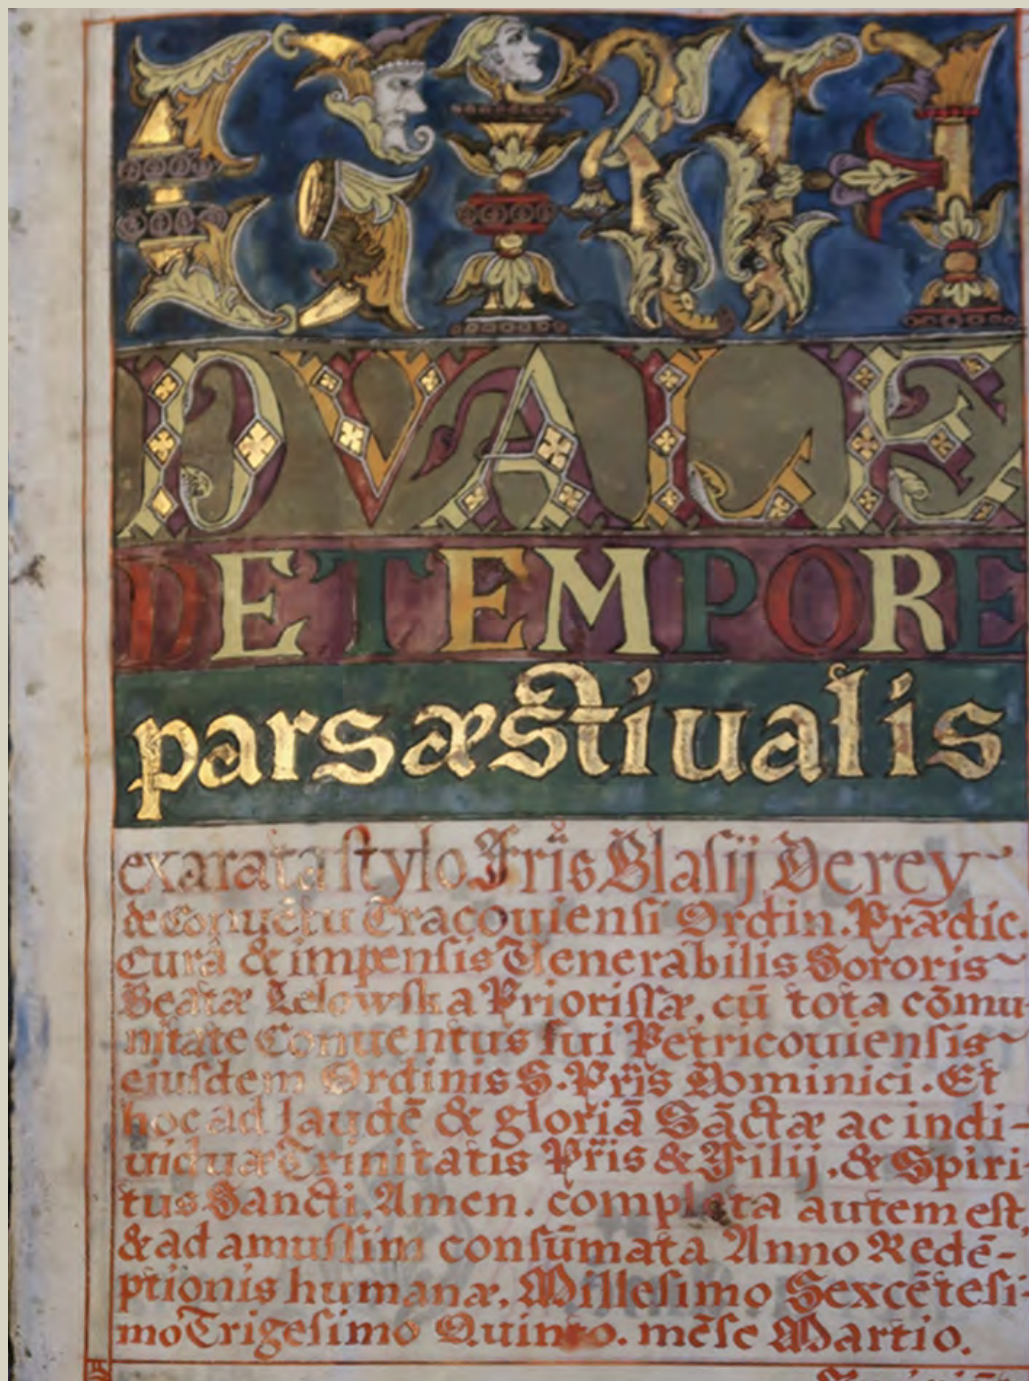 GRA
DVALE
DE TEMPORE
pars æstiualis
exarata ſtylo Fr̃is Blaſij Derey
de Conuẽtu Cracouienſi Ordin. Prædic.
Curâ & impenſis Venerabilis Sororis
Beatæ Lelowſka Prioriſſæ, cũ tota cõmu
nitate Conuentus ſui Petricouienſis
eiuſdem Ordinis S. Pr̃is Dominici. Et
hoc ad laudẽ & gloriã Sãctæ ac indi-
uiduæ Trinitatis Pr̃is & Filij, & Spiri-
tus Sancti, Amen. completa autem eſt,
& ad amuſſim conſũmata Anno Redẽ-
ptionis humanæ, Milleſimo Sexcẽteſi-
mo Trigeſimo Quinto. mẽſe Martio.